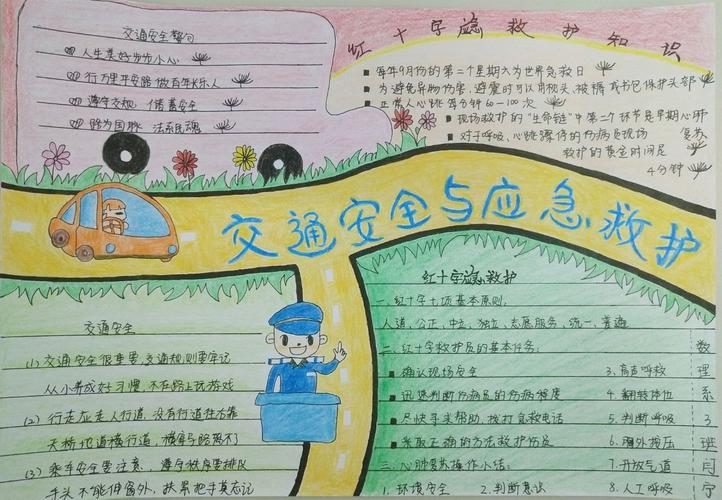 交通安全警句
人生美好 步步小心
行万里平安路 做百年长乐人
遵守交规 储蓄安全
路为国脉 法系民魂
红十字应急救护知识
每年9月份的第二个星期六为世界急救日
为避免异物伤害，避震时可以用枕头、被褥或书包保护头部
正常人心跳每分钟60-100次
现场救护的"生命链"中第二个环节是早期心肺
复苏
对于呼吸、心跳骤停的伤病员现场
救护的黄金时间是
4分钟
交通安全与应急救护
交通安全
(1) 交通安全很重要,交通规则要牢记
从小养成好习惯,不在路上玩游戏
(2) 行走应走人行道,没有行道往右靠
天桥地道横行道,横穿马路莫不了
(3) 乘车安全要注意,遵守秩序要排队
手头不能伸窗外,扶紧把手莫忘记
红十字应急救护
一、红十字七项基本原则:
人道、公正、中立、独立、志愿服务、统一、普遍
二、红十字救护员的基本任务:
确认现场安全
迅速判断伤病员的伤病程度
尽快寻求帮助,拨打急救电话
采取正确的方法救护伤员
三、心肺复苏操作小结:
1. 环境安全
2. 判断意识
3. 高声呼救
4. 翻转体位
5. 判断呼吸
6. 胸外按压
7. 开放气道
8. 人工呼吸
数理系3班